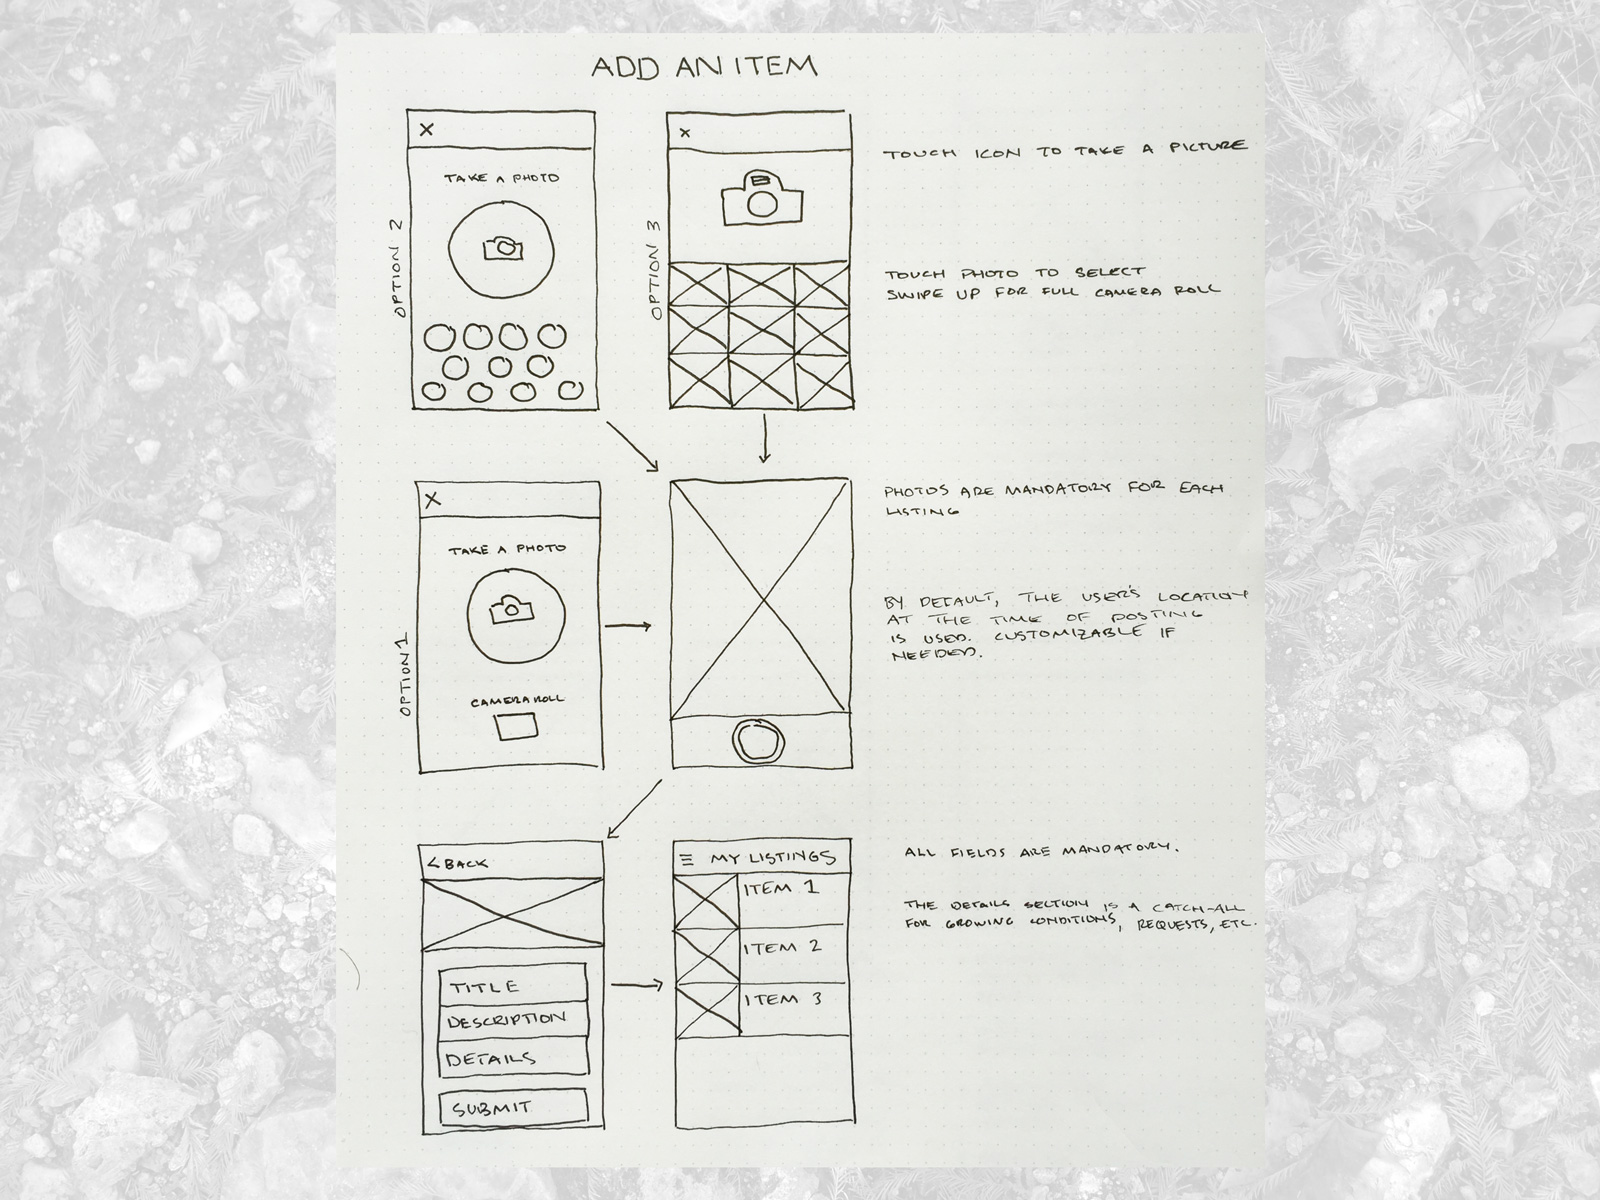 ADD AN ITEM
X
TAKE A PHOTO
OPTION 2
X
OPTION 3
TOUCH ICON TO TAKE A PICTURE
TOUCH PHOTO TO SELECT
SWIPE UP FOR FULL CAMERA ROLL
X
TAKE A PHOTO
CAMERA ROLL
OPTION 1
PHOTOS ARE MANDATORY FOR EACH
LISTING
BY DEFAULT, THE USER'S LOCATION
AT THE TIME OF POSTING
IS USED. CUSTOMIZABLE IF
NEEDED.
< BACK
TITLE
DESCRIPTION
DETAILS
SUBMIT
MY LISTINGS
ITEM 1
ITEM 2
ITEM 3
ALL FIELDS ARE MANDATORY.
THE DETAILS SECTION IS A CATCH-ALL
FOR GROWING CONDITIONS, REQUESTS, ETC.